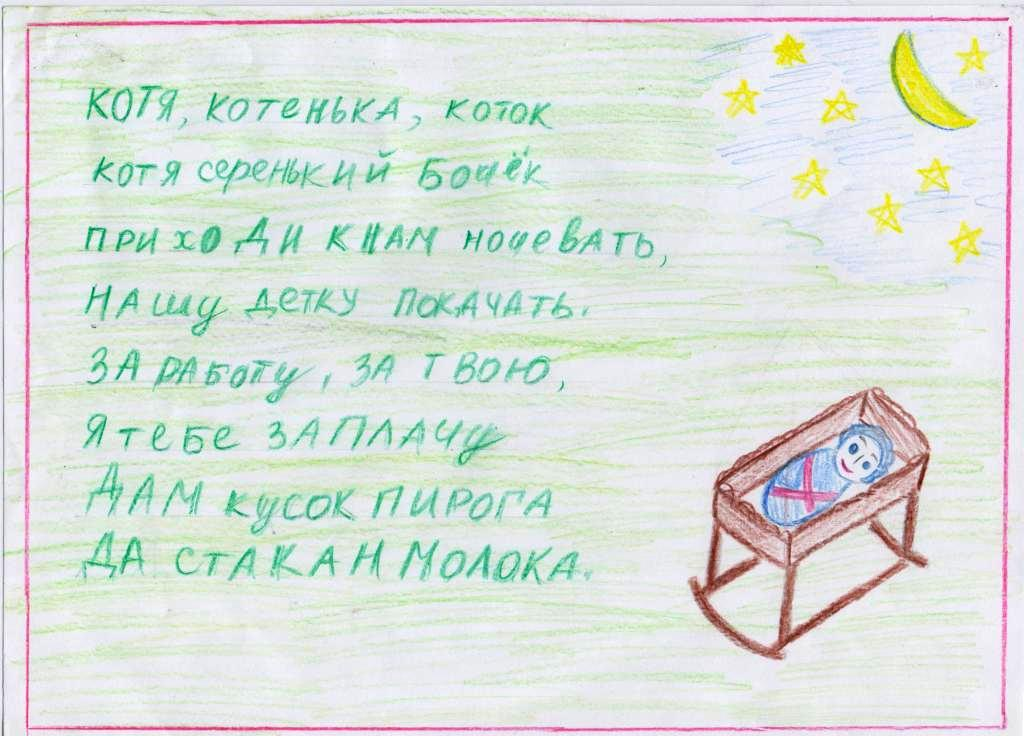 КОТЯ, КОТЕНЬКА, КОТОК
КОТЯ СЕРЕНЬКИЙ БОЧЁК
ПРИХОДИ К НАМ НОЧЕВАТЬ,
НАШУ ДЕТКУ ПОКАЧАТЬ.
ЗА РАБОТУ, ЗА ТВОЮ,
Я ТЕБЕ ЗАПЛАЧУ
ДАМ КУСОК ПИРОГА
ДА СТАКАН МОЛОКА.